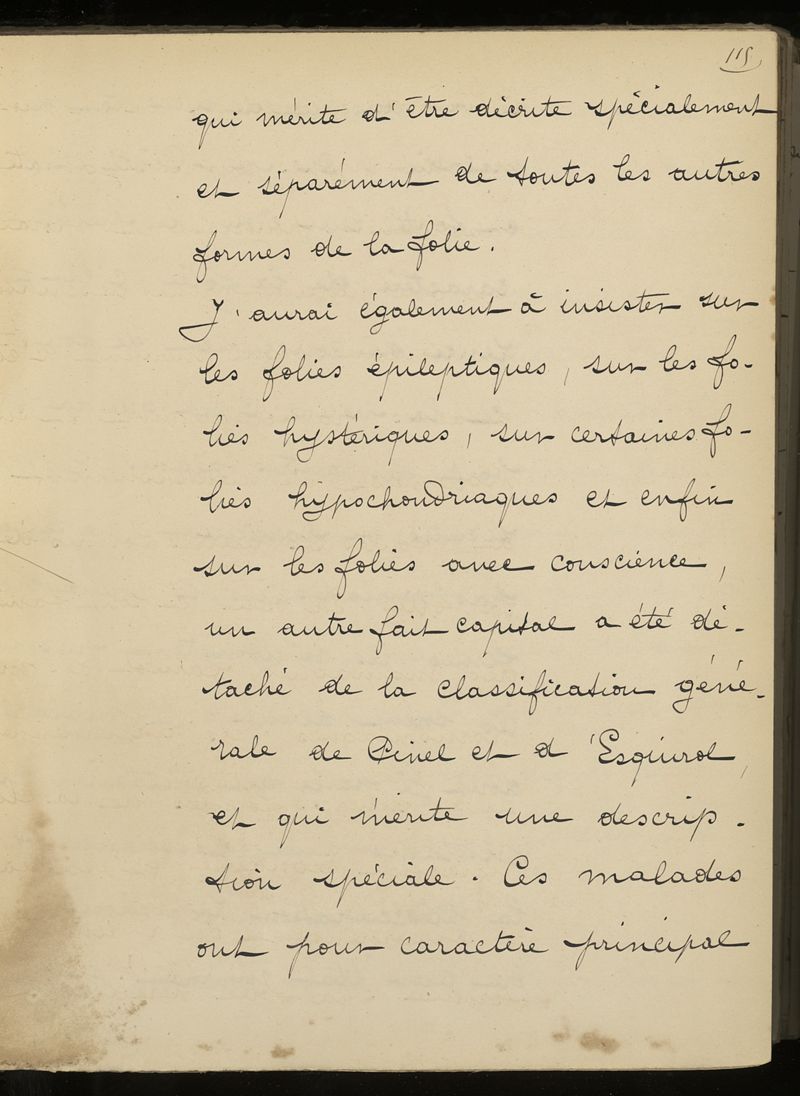 115
qui mérite d'être décrite spécialement
et séparément de toutes les autres
formes de la folie.
J'aurai également à insister sur
les folies épileptiques, sur les fo-
lies hystériques, sur certaines fo-
lies hypochondriaques et enfin
sur les folies avec conscience,
un autre fait capital a été dé-
taché de la classification géné-
rale de Pinel et d'Esquirol,
et qui mérite une descrip-
tion spéciale. Ces malades
ont pour caractère principal